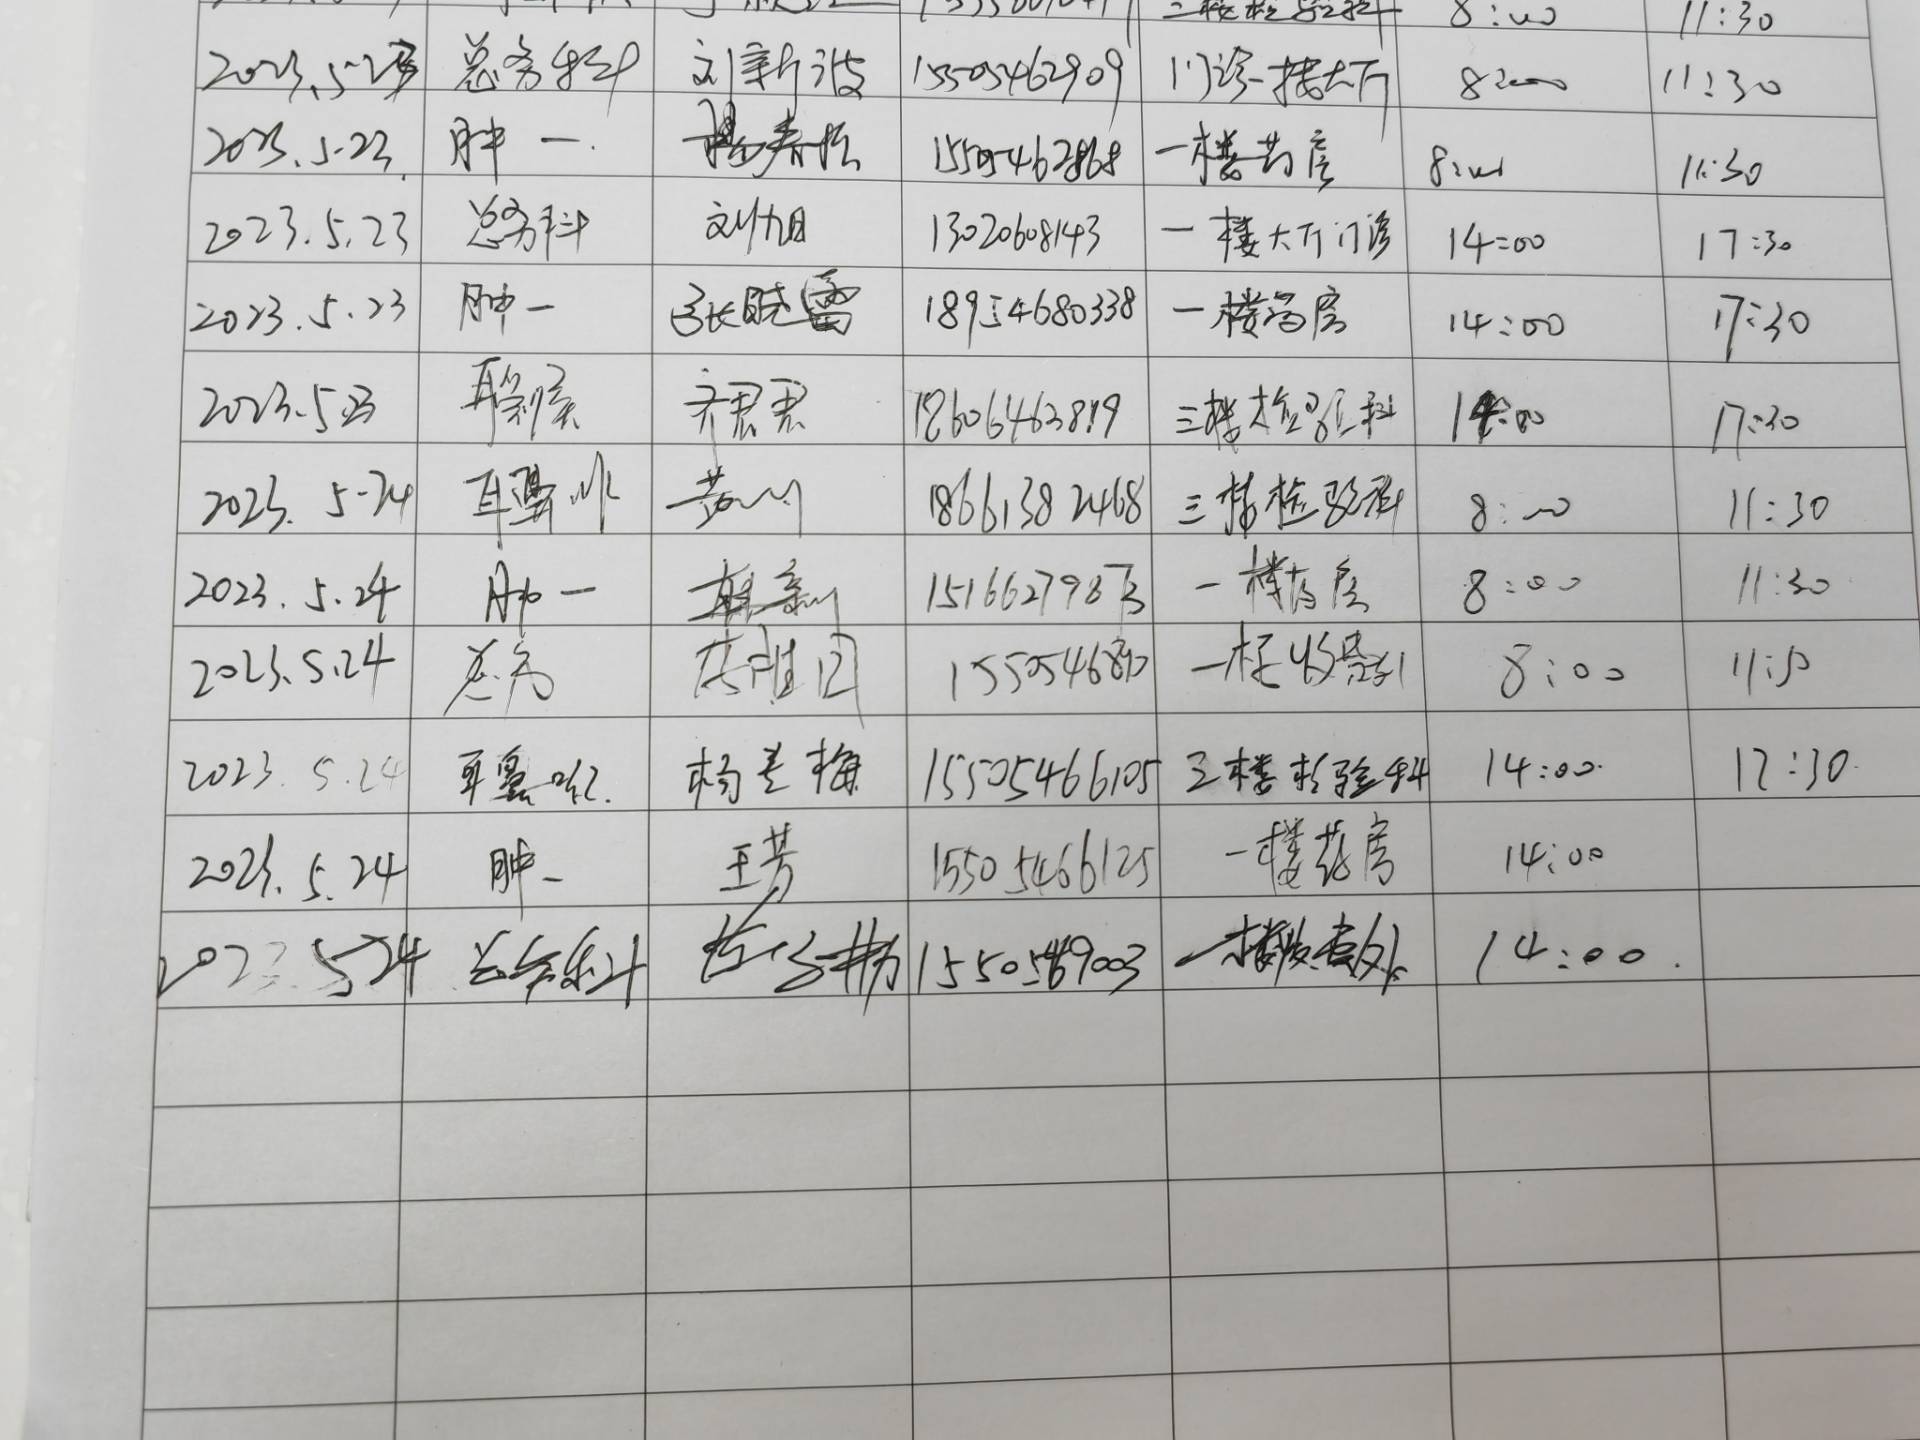 8:00 11:30
2023.5.23 总务科 刘新波 15505462909 门诊一楼大厅 8:00 11:30
2023.5.23. 肿一. 15505462868 一楼药房 8:00 11:30
2023.5.23 总务科 刘旭 13020608143 一楼大厅门诊 14:00 17:30
2023.5.23 肿一 张晓雷 18954680338 一楼药房 14:00 17:30
2023.5.23 耳鼻喉 齐君君 18606463819 三楼检验科 14:00 17:30
2023.5.24 耳鼻 18661382468 三楼检验科 8:00 11:30
2023.5.24 肿一 15166279873 一楼药房 8:00 11:30
2023.5.24 总务 一楼收费 8:00 11:30
2023.5.24 耳鼻喉. 杨兰梅 15505466105 三楼检验科 14:00. 17:30.
2023.5.24 肿一 王芳 15505466125 一楼药房 14:00
2023.5.24 总务科 一楼收费处 14:00.